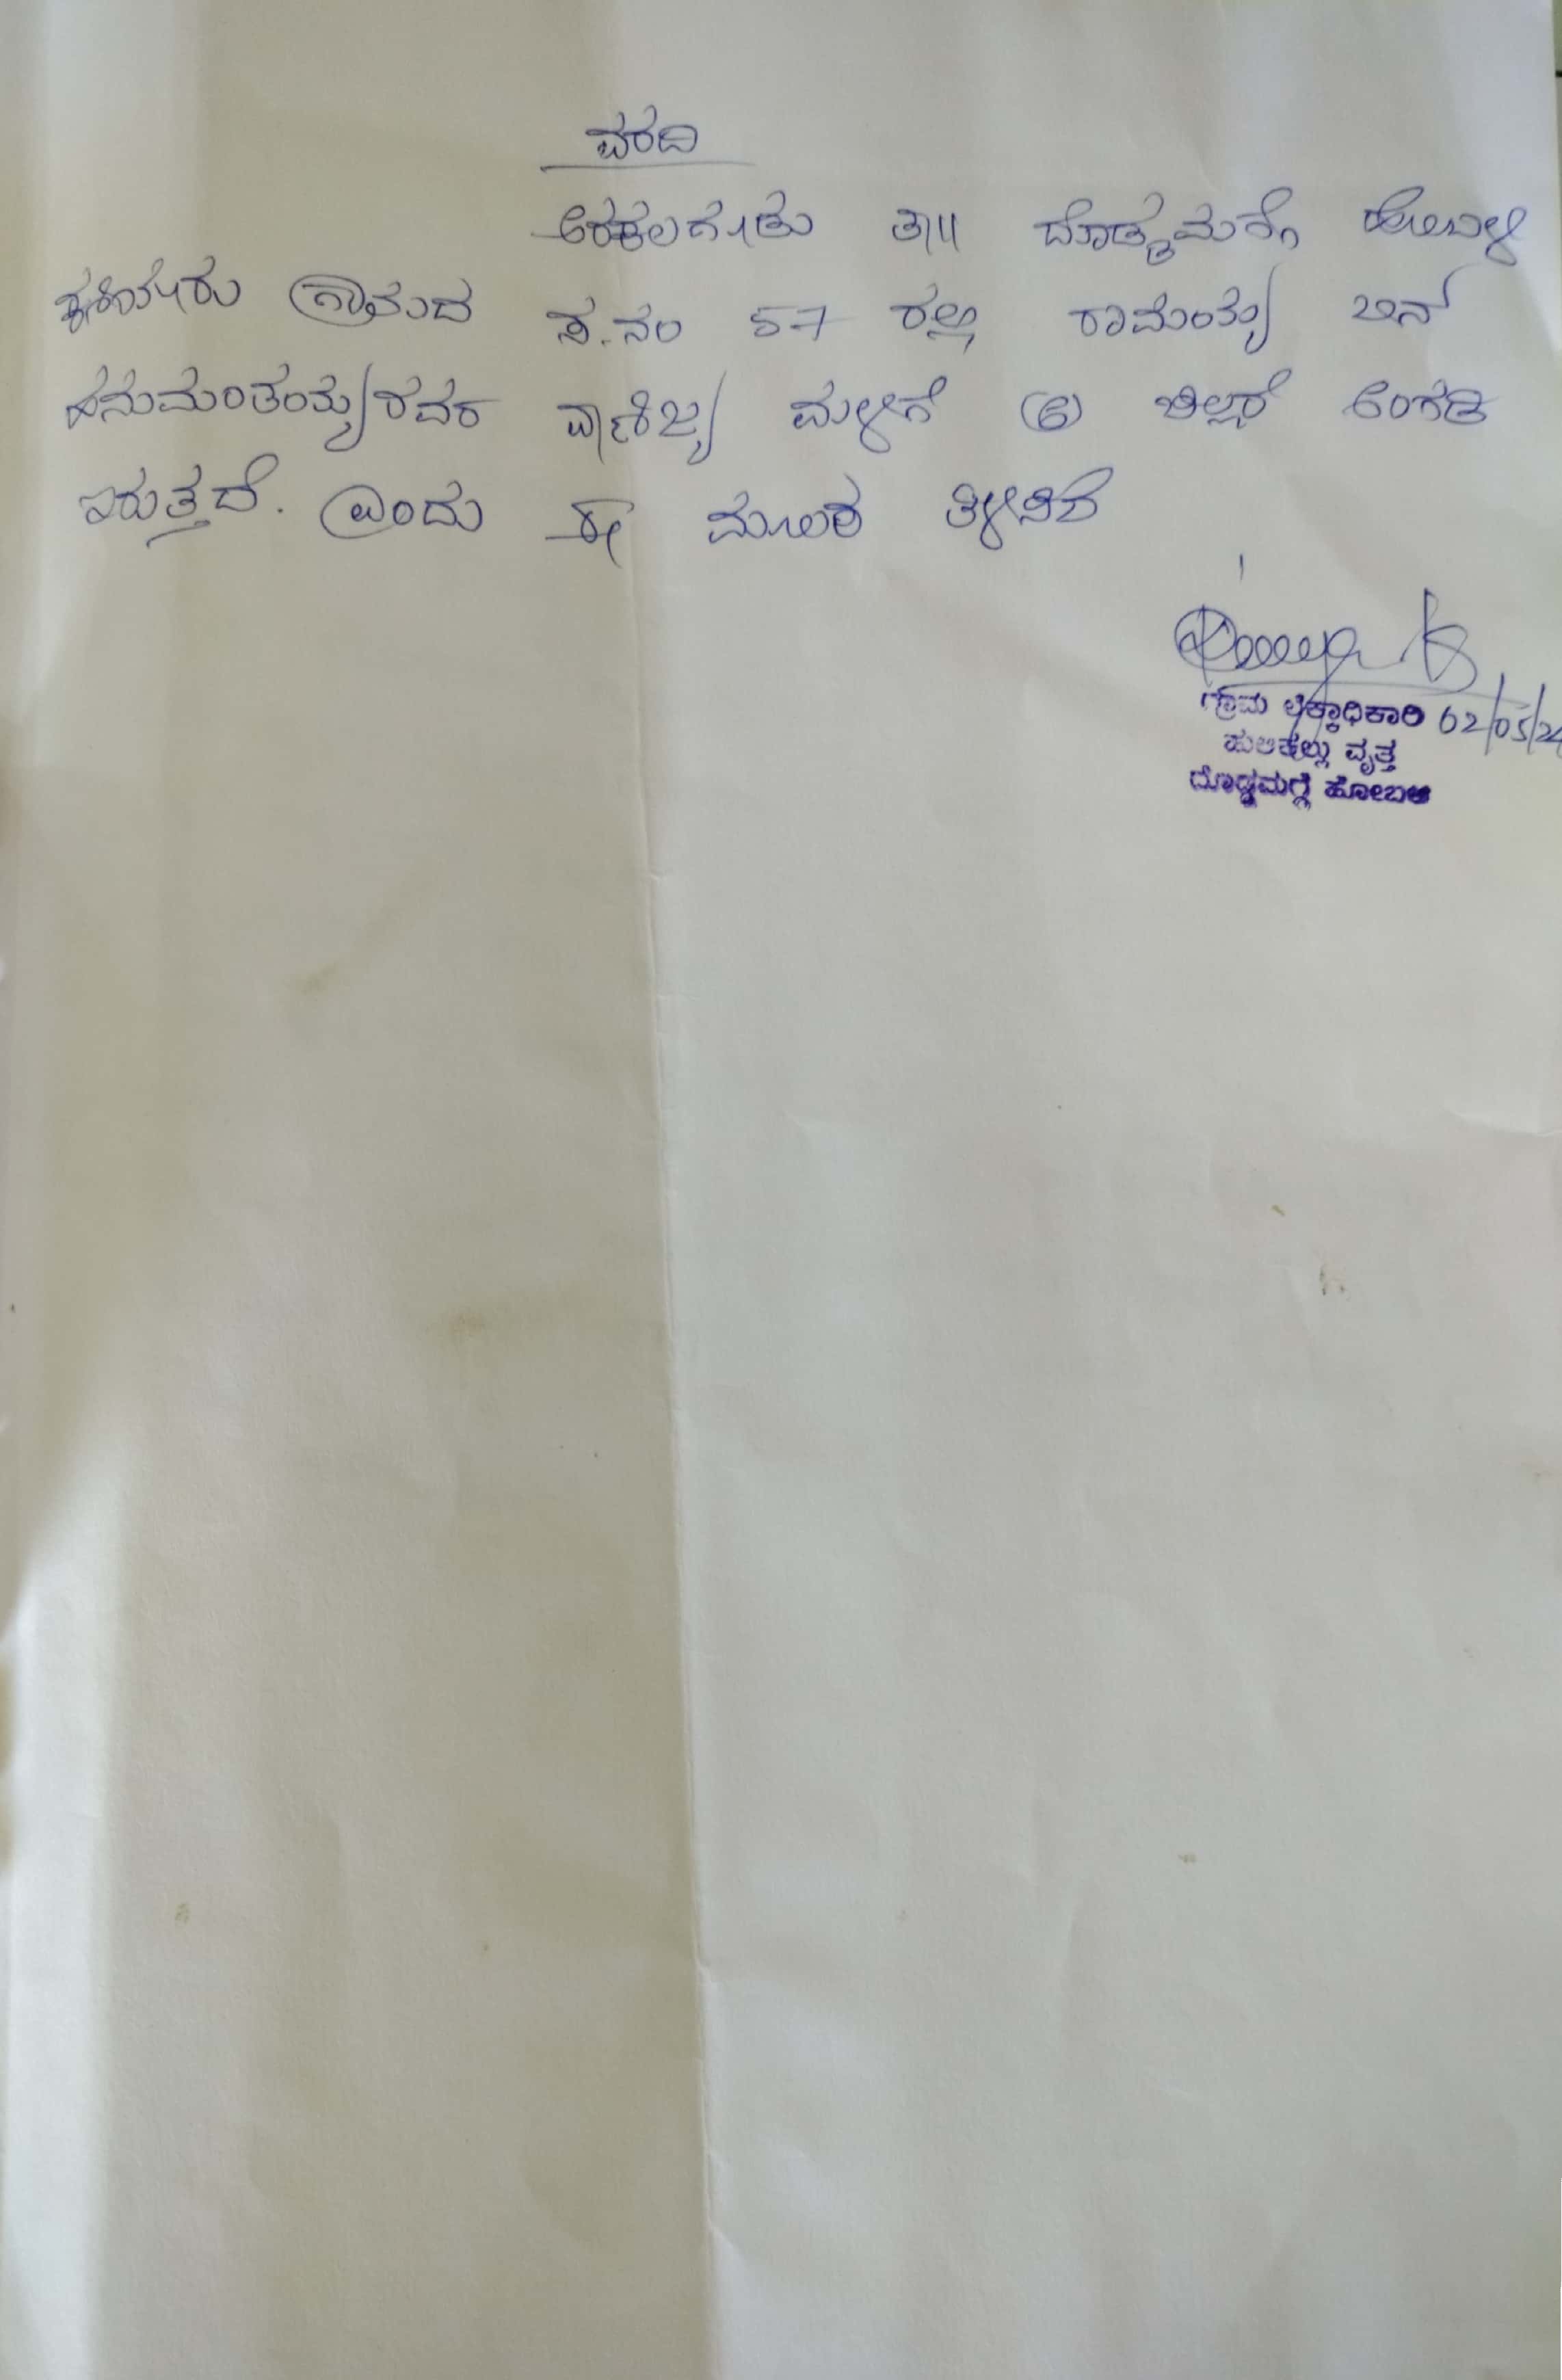 ವರದಿ
ಅರಕಲಗೂಡು ತಾ|| ದೊಡ್ಡಮಗ್ಗೆ ಹೋಬಳಿ
ಗ್ರಾಮದ ಸ.ನಂ 57 ರಲ್ಲಿ ರಾಮಯ್ಯ ಬಿನ್
ಹನುಮಂತಯ್ಯರವರ ವಾಣಿಜ್ಯ ಮಳಿಗೆ (6) ಚಿಲ್ಲರೆ ಅಂಗಡಿ
ಇರುತ್ತದೆ. ಎಂದು ಈ ಮೂಲಕ ತಿಳಿಸಿದೆ
ಗ್ರಾಮ ಲೆಕ್ಕಾಧಿಕಾರಿ 02/05/24
ಹುಲಿಕಲ್ಲು ವೃತ್ತ
ದೊಡ್ಡಮಗ್ಗೆ ಹೋಬಳಿ